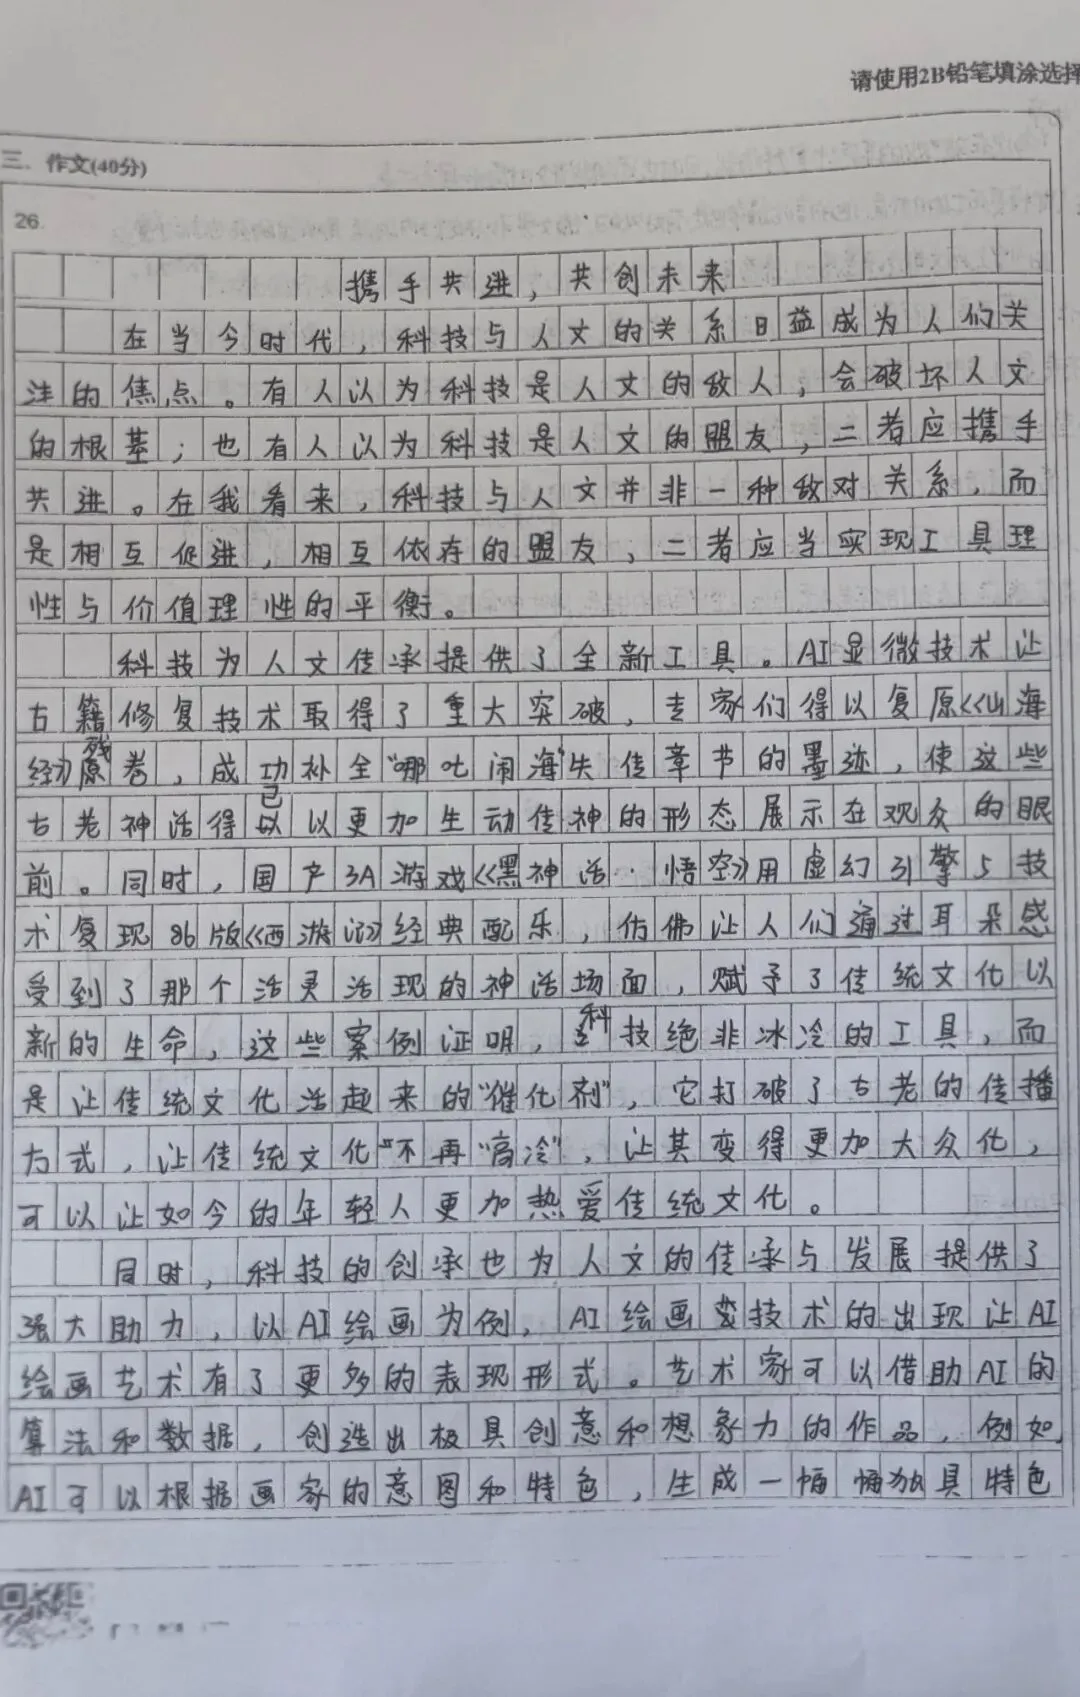 请使用2B铅笔填涂选择
三. 作文(40分)
26.
携手共进，共创未来
在当今时代，科技与人文的关系日益成为人们关
注的焦点。有人以为科技是人文的敌人，会破坏人文
的根基；也有人以为科技是人文的盟友，二者应携手
共进。在我看来，科技与人文并非一种敌对关系，而
是相互促进，相互依存的盟友，二者应当实现工具理
性与价值理性的平衡。
科技为人文传承提供了全新工具。AI显微技术让
古籍修复技术取得了重大突破，专家们得以复原《山海
经》残卷，成功补全“哪吒闹海”失传章节的墨迹，使这些
古老神话得已以更加生动传神的形态展示在观众的眼
前。同时，国产3A游戏《黑神话·悟空》用虚幻引擎5技
术复现86版《西游记》经典配乐，仿佛让人们通过耳朵感
受到了那个活灵活现的神话场面，赋予了传统文化以
新的生命，这些案例证明，科技绝非冰冷的工具，而
是让传统文化活起来的“催化剂”，它打破了古老的传播
方式，让传统文化不再“高冷”，让其变得更加大众化，
可以让如今的年轻人更加热爱传统文化。
同时，科技的创承也为人文的传承与发展提供了
强大助力，以AI绘画为例，AI绘画技术的出现让AI
绘画艺术有了更多的表现形式。艺术家可以借助AI的
算法和数据，创造出极具创意和想象力的作品，例如，
AI可以根据画家的意图和特色，生成一幅幅独具特色